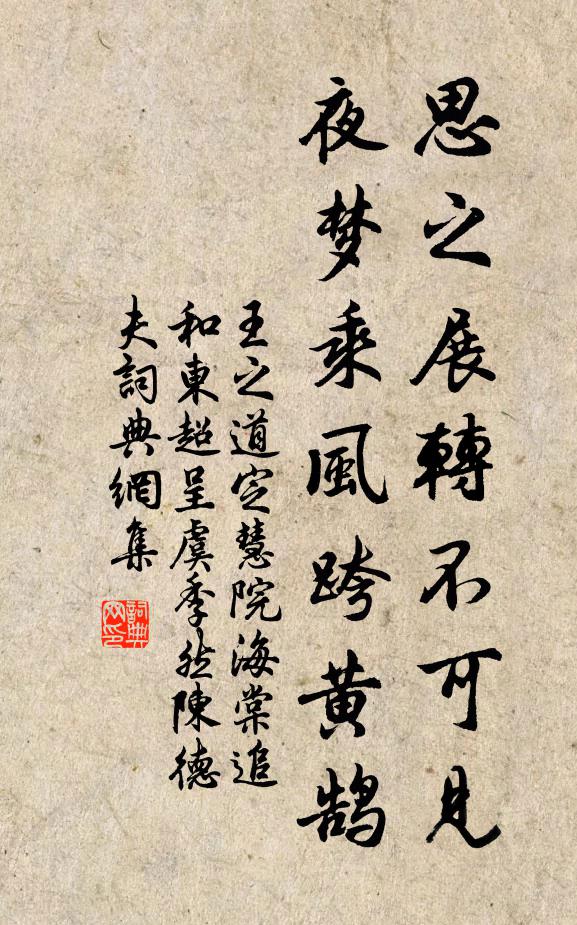 思之展轉不可見
夜梦乘風跨黄鹄
王之道定慧院海棠追
和東超呈虞季然陳德
夫詞典網集
詞典网印